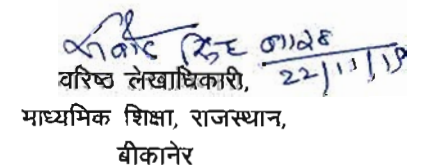 सिंह
22/11/19
वरिष्ठ लेखाधिकारी,
माध्यमिक शिक्षा, राजस्थान,
बीकानेर